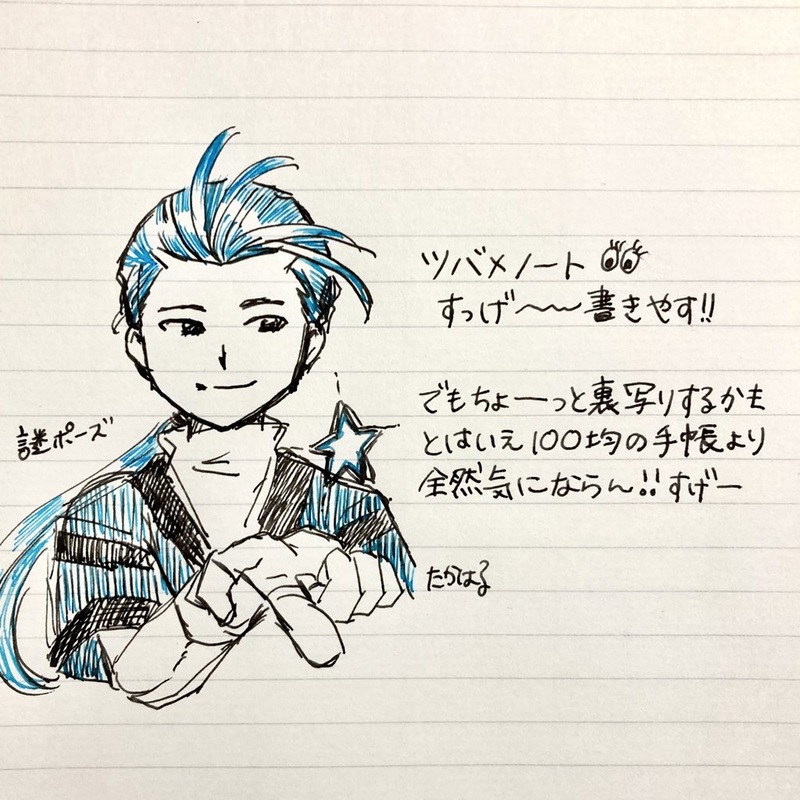 ツバメノート
すっげ〜〜書きやす!!
でもちょーっと裏写りするかも
とはいえ100均の手帳より
全然気にならん!!すげー
謎ポーズ
たかはる